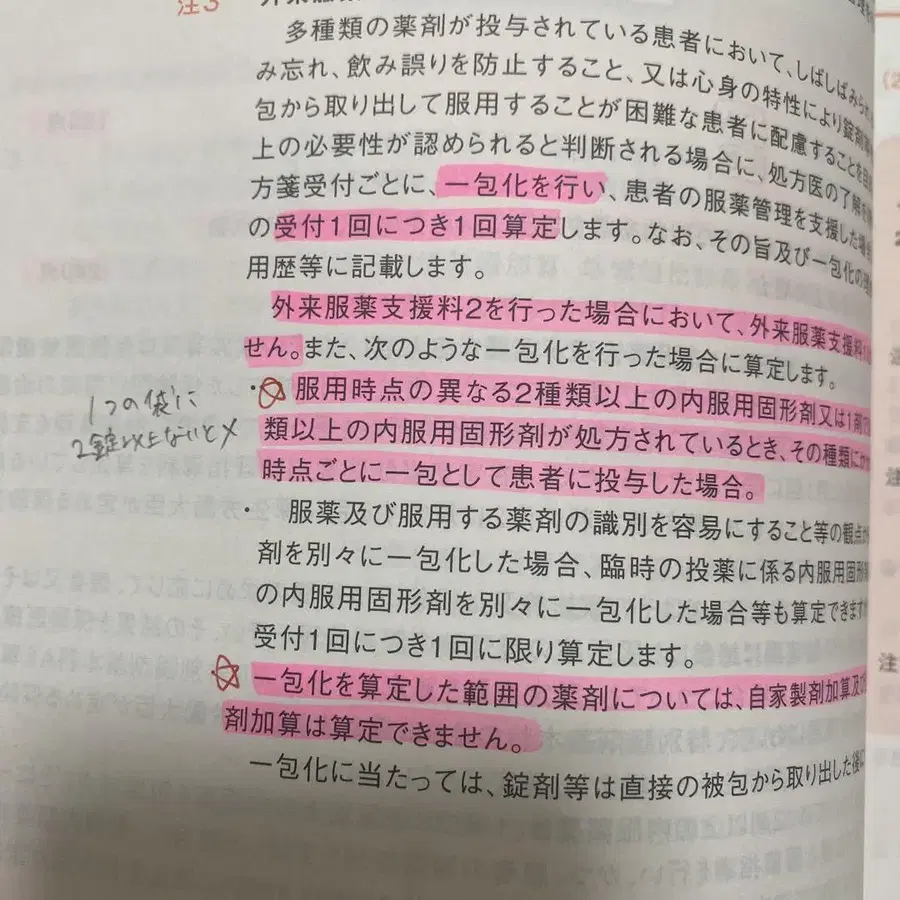 注3
多種類の薬剤が投与されている患者において、しばしばみられ
み忘れ、飲み誤りを防止すること、又は心身の特性により錠剤等
包から取り出して服用することが困難な患者に配慮することを目
上の必要性が認められると判断される場合に、処方医の了解を
方箋受付ごとに、一包化を行い、患者の服薬管理を支援した場
の受付1回につき1回算定します。なお、その旨及び一包化の
用歴等に記載します。
外来服薬支援料2を行った場合において、外来服薬支援料
せん。また、次のような一包化を行った場合に算定します。
・服用時点の異なる2種類以上の内服用固形剤又は1剤で
類以上の内服用固形剤が処方されているとき、その種類に
時点ごとに一包として患者に投与した場合。
・服薬及び服用する薬剤の識別を容易にすること等の観点
剤を別々に一包化した場合、臨時の投薬に係る内服用固形
の内服用固形剤を別々に一包化した場合等も算定できます
受付1回につき1回に限り算定します。
一包化を算定した範囲の薬剤については、自家製剤加算及び
剤加算は算定できません。
一包化に当たっては、錠剤等は直接の被包から取り出した後
1つの袋に
2錠以上ないと×